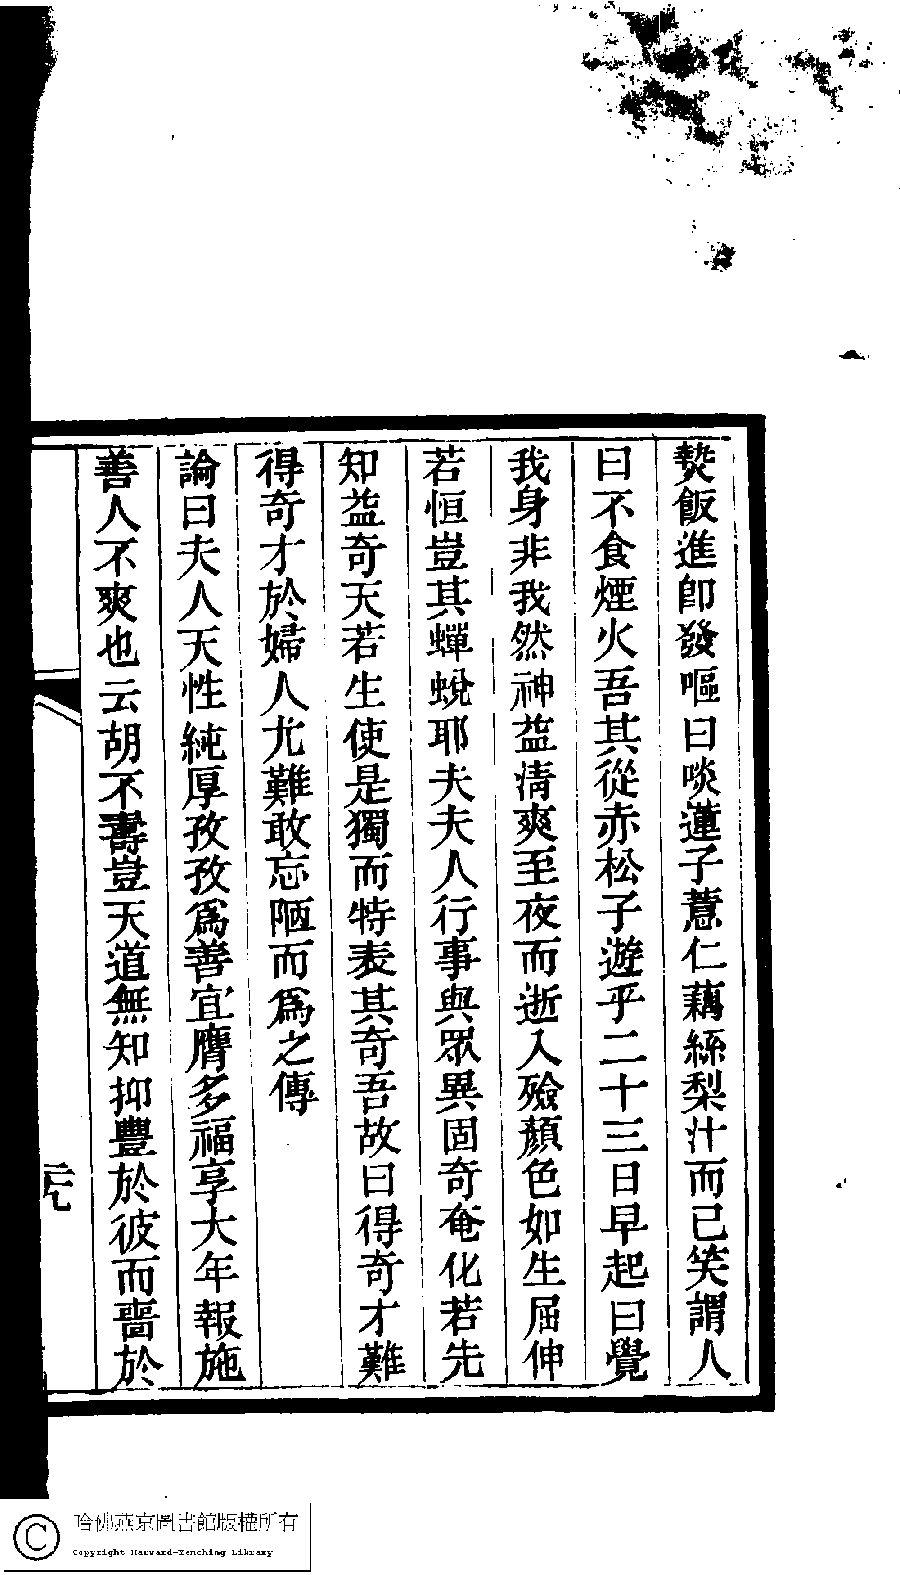 爕飯進卽發嘔曰啖蓮子薏仁藕絲梨汁而已笑謂人
曰不食煙火吾其從赤松子遊乎二十三日早起曰覺
我身非我然神益淸爽至夜而逝入殮顏色如生屈伸
若恒豈其蟬蛻耶夫夫人行事與眾異固奇奄化若先
知益奇天若生使是獨而特表其奇吾故曰得奇才難
得奇才於婦人尤難敢忘陋而爲之傳
論曰夫人天性純厚孜孜爲善宜膺多福享大年報施
善人不爽也云胡不壽豈天道無知抑豐於彼而嗇於
哈佛燕京圖書館版權所有
Copyright Harvard-Yenching Library